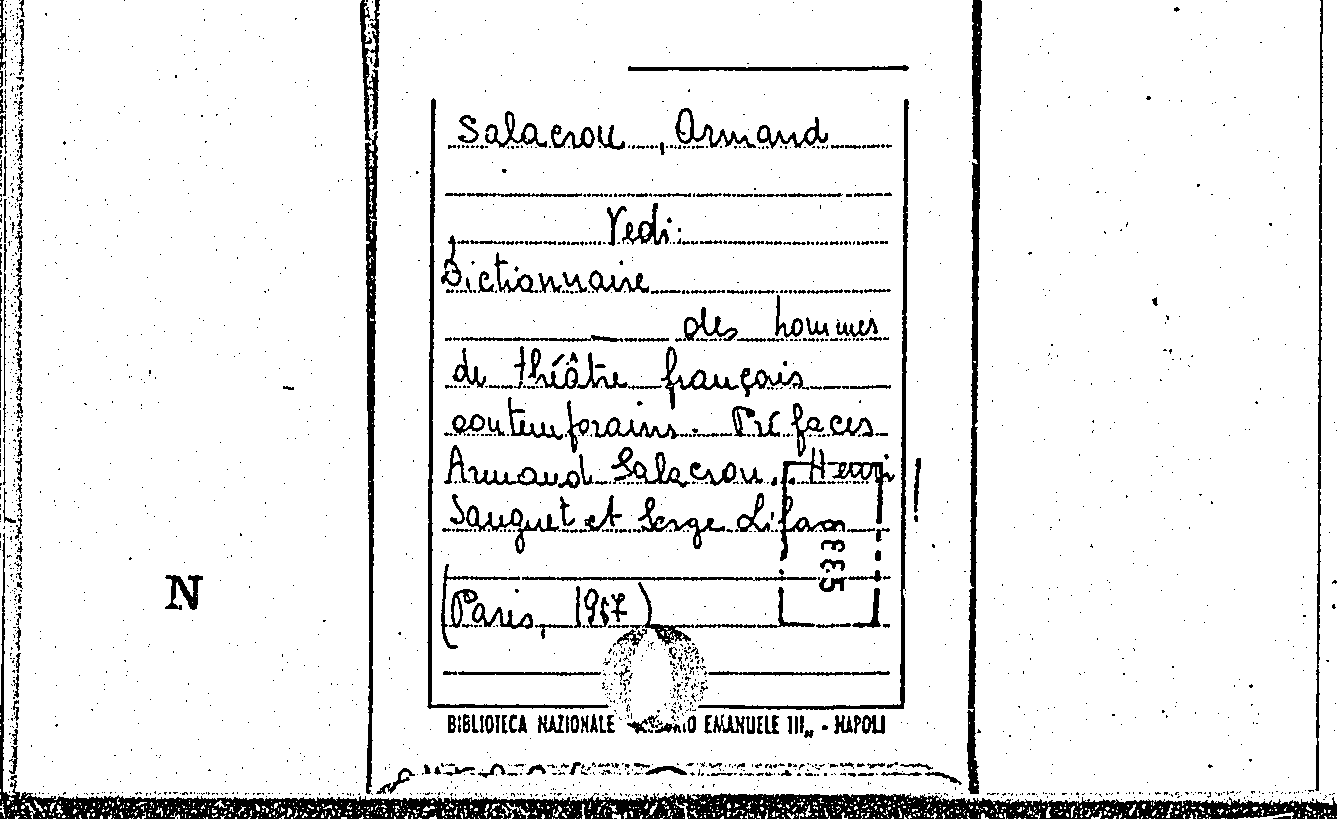 Salacrou, Armand
Vedi:
Dictionnaire
des hommes
de théâtre français
contemporains. Préfaces
Armand Salacrou, Henri
Sauguet et Serge Lifar
533
(Paris, 1957)
N
BIBLIOTECA NAZIONALE EMANUELE III„ - NAPOLI